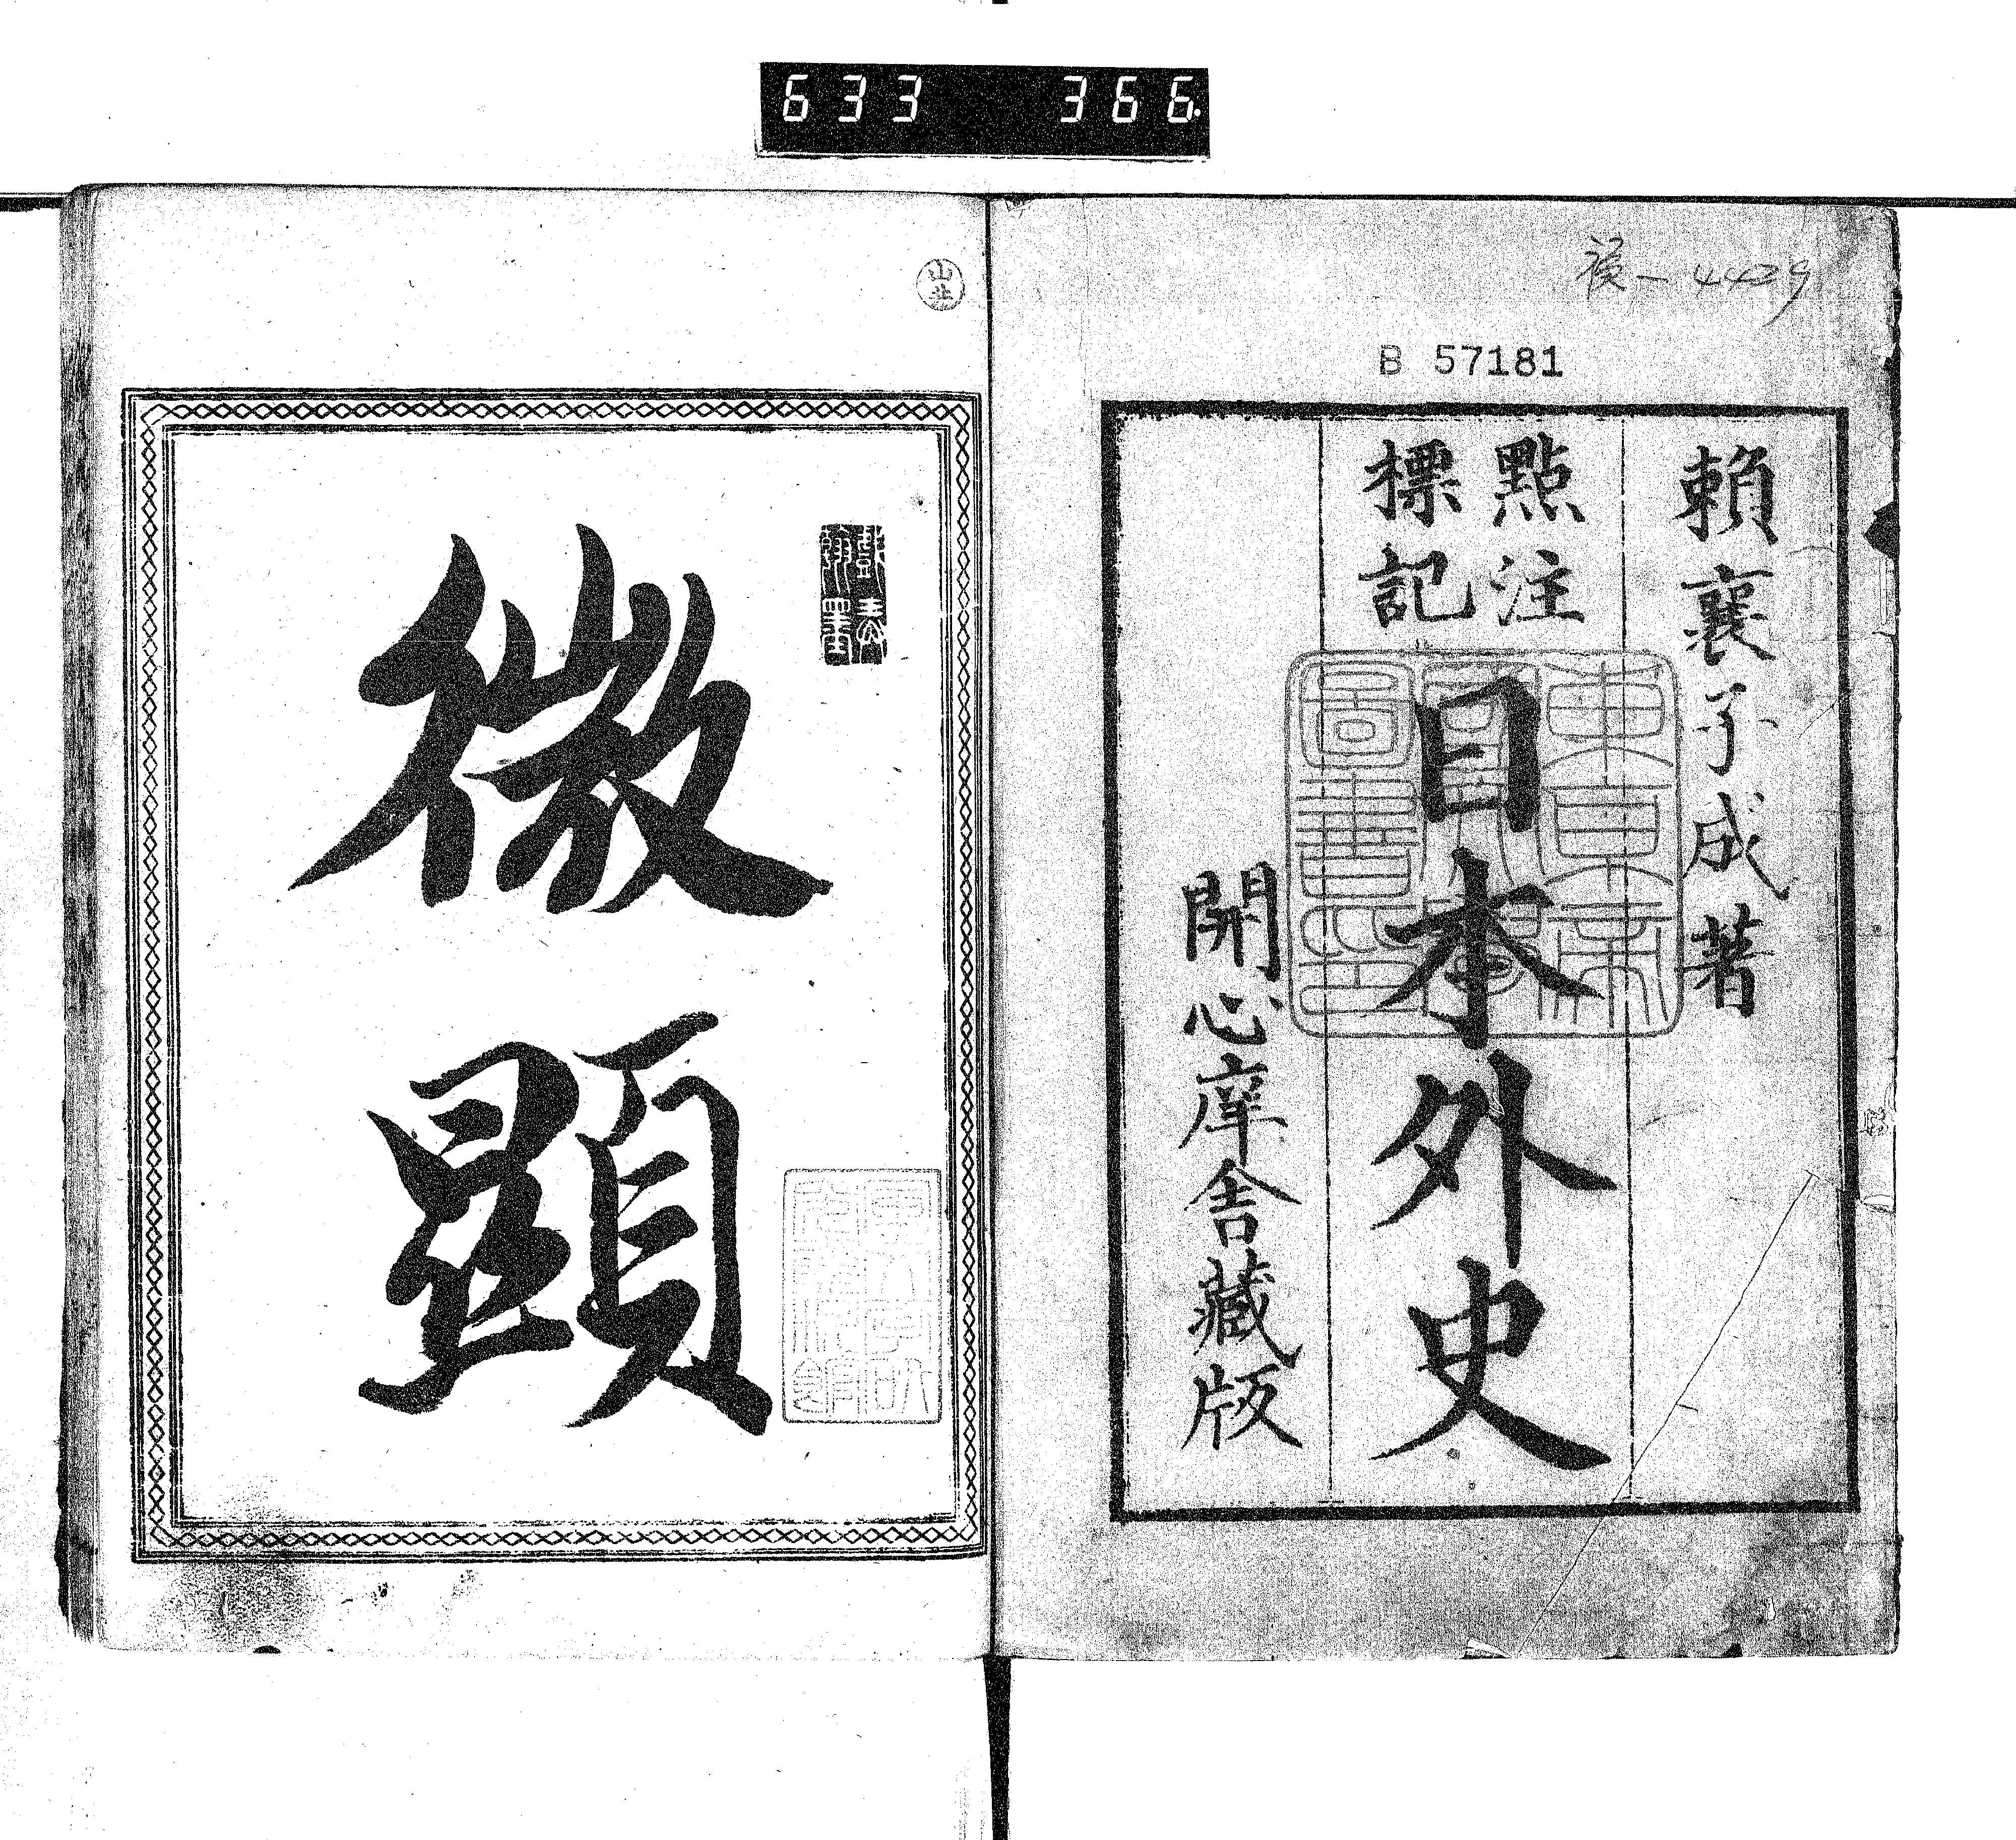 633 366
B 57181
賴襄子成著
點注
標記
日本外史
開心庠舍藏版
微顯